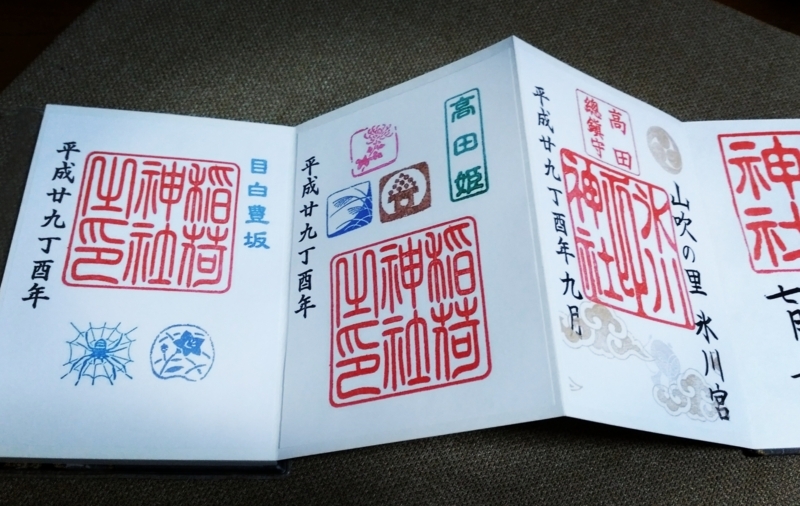 目白豊坂
稲荷
神社
之印
平成廿九丁酉年
高田姫
稲荷
神社
之印
平成廿九丁酉年
山吹の里 氷川宮
高田
總鎮守
氷川
神社
平成廿九丁酉年九月
神社